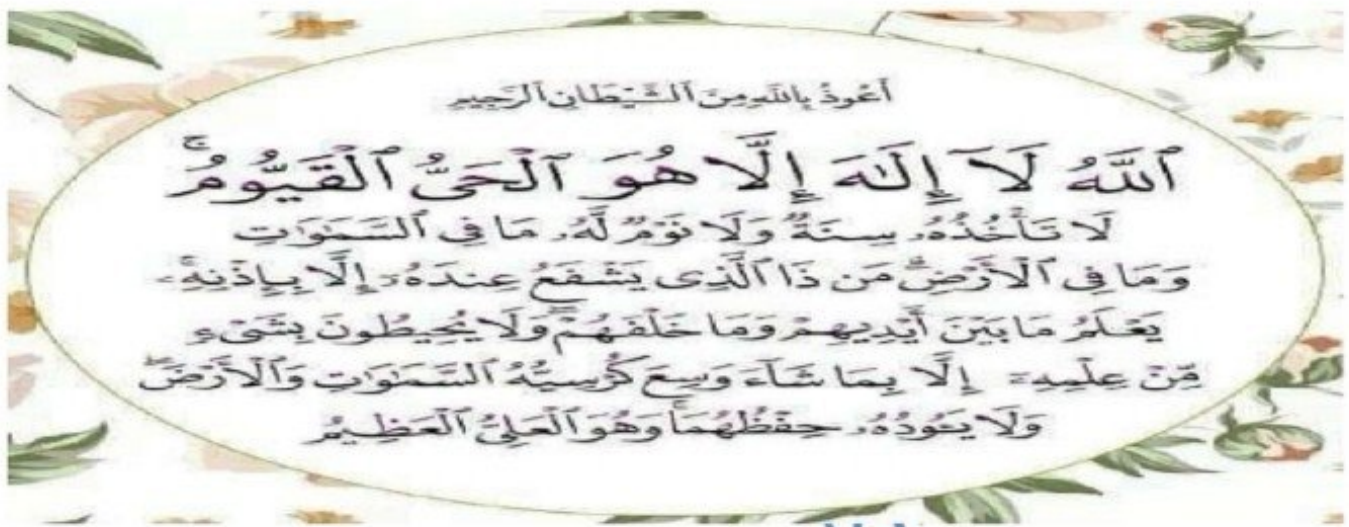 أَعُوذُ بِاللَّهِ مِنَ ٱلشَّيْطَانِ ٱلرَّجِيمِ
ٱللَّهُ لَآ إِلَٰهَ إِلَّا هُوَ ٱلْحَىُّ ٱلْقَيُّومُ ۚ
لَا تَأْخُذُهُۥ سِنَةٌ وَلَا نَوْمٌ لَّهُۥ مَا فِي ٱلسَّمَٰوَٰتِ
وَمَا فِي ٱلْأَرْضِ ۗ مَن ذَا ٱلَّذِى يَشْفَعُ عِندَهُۥٓ إِلَّا بِإِذْنِهِۦ ۚ
يَعْلَمُ مَا بَيْنَ أَيْدِيهِمْ وَمَا خَلْفَهُمْ ۖ وَلَا يُحِيطُونَ بِشَىْءٍ
مِّنْ عِلْمِهِۦٓ إِلَّا بِمَا شَآءَ ۚ وَسِعَ كُرْسِيُّهُ ٱلسَّمَٰوَٰتِ وَٱلْأَرْضَ ۖ
وَلَا يَـُٔودُهُۥ حِفْظُهُمَا ۚ وَهُوَ ٱلْعَلِىُّ ٱلْعَظِيمُ